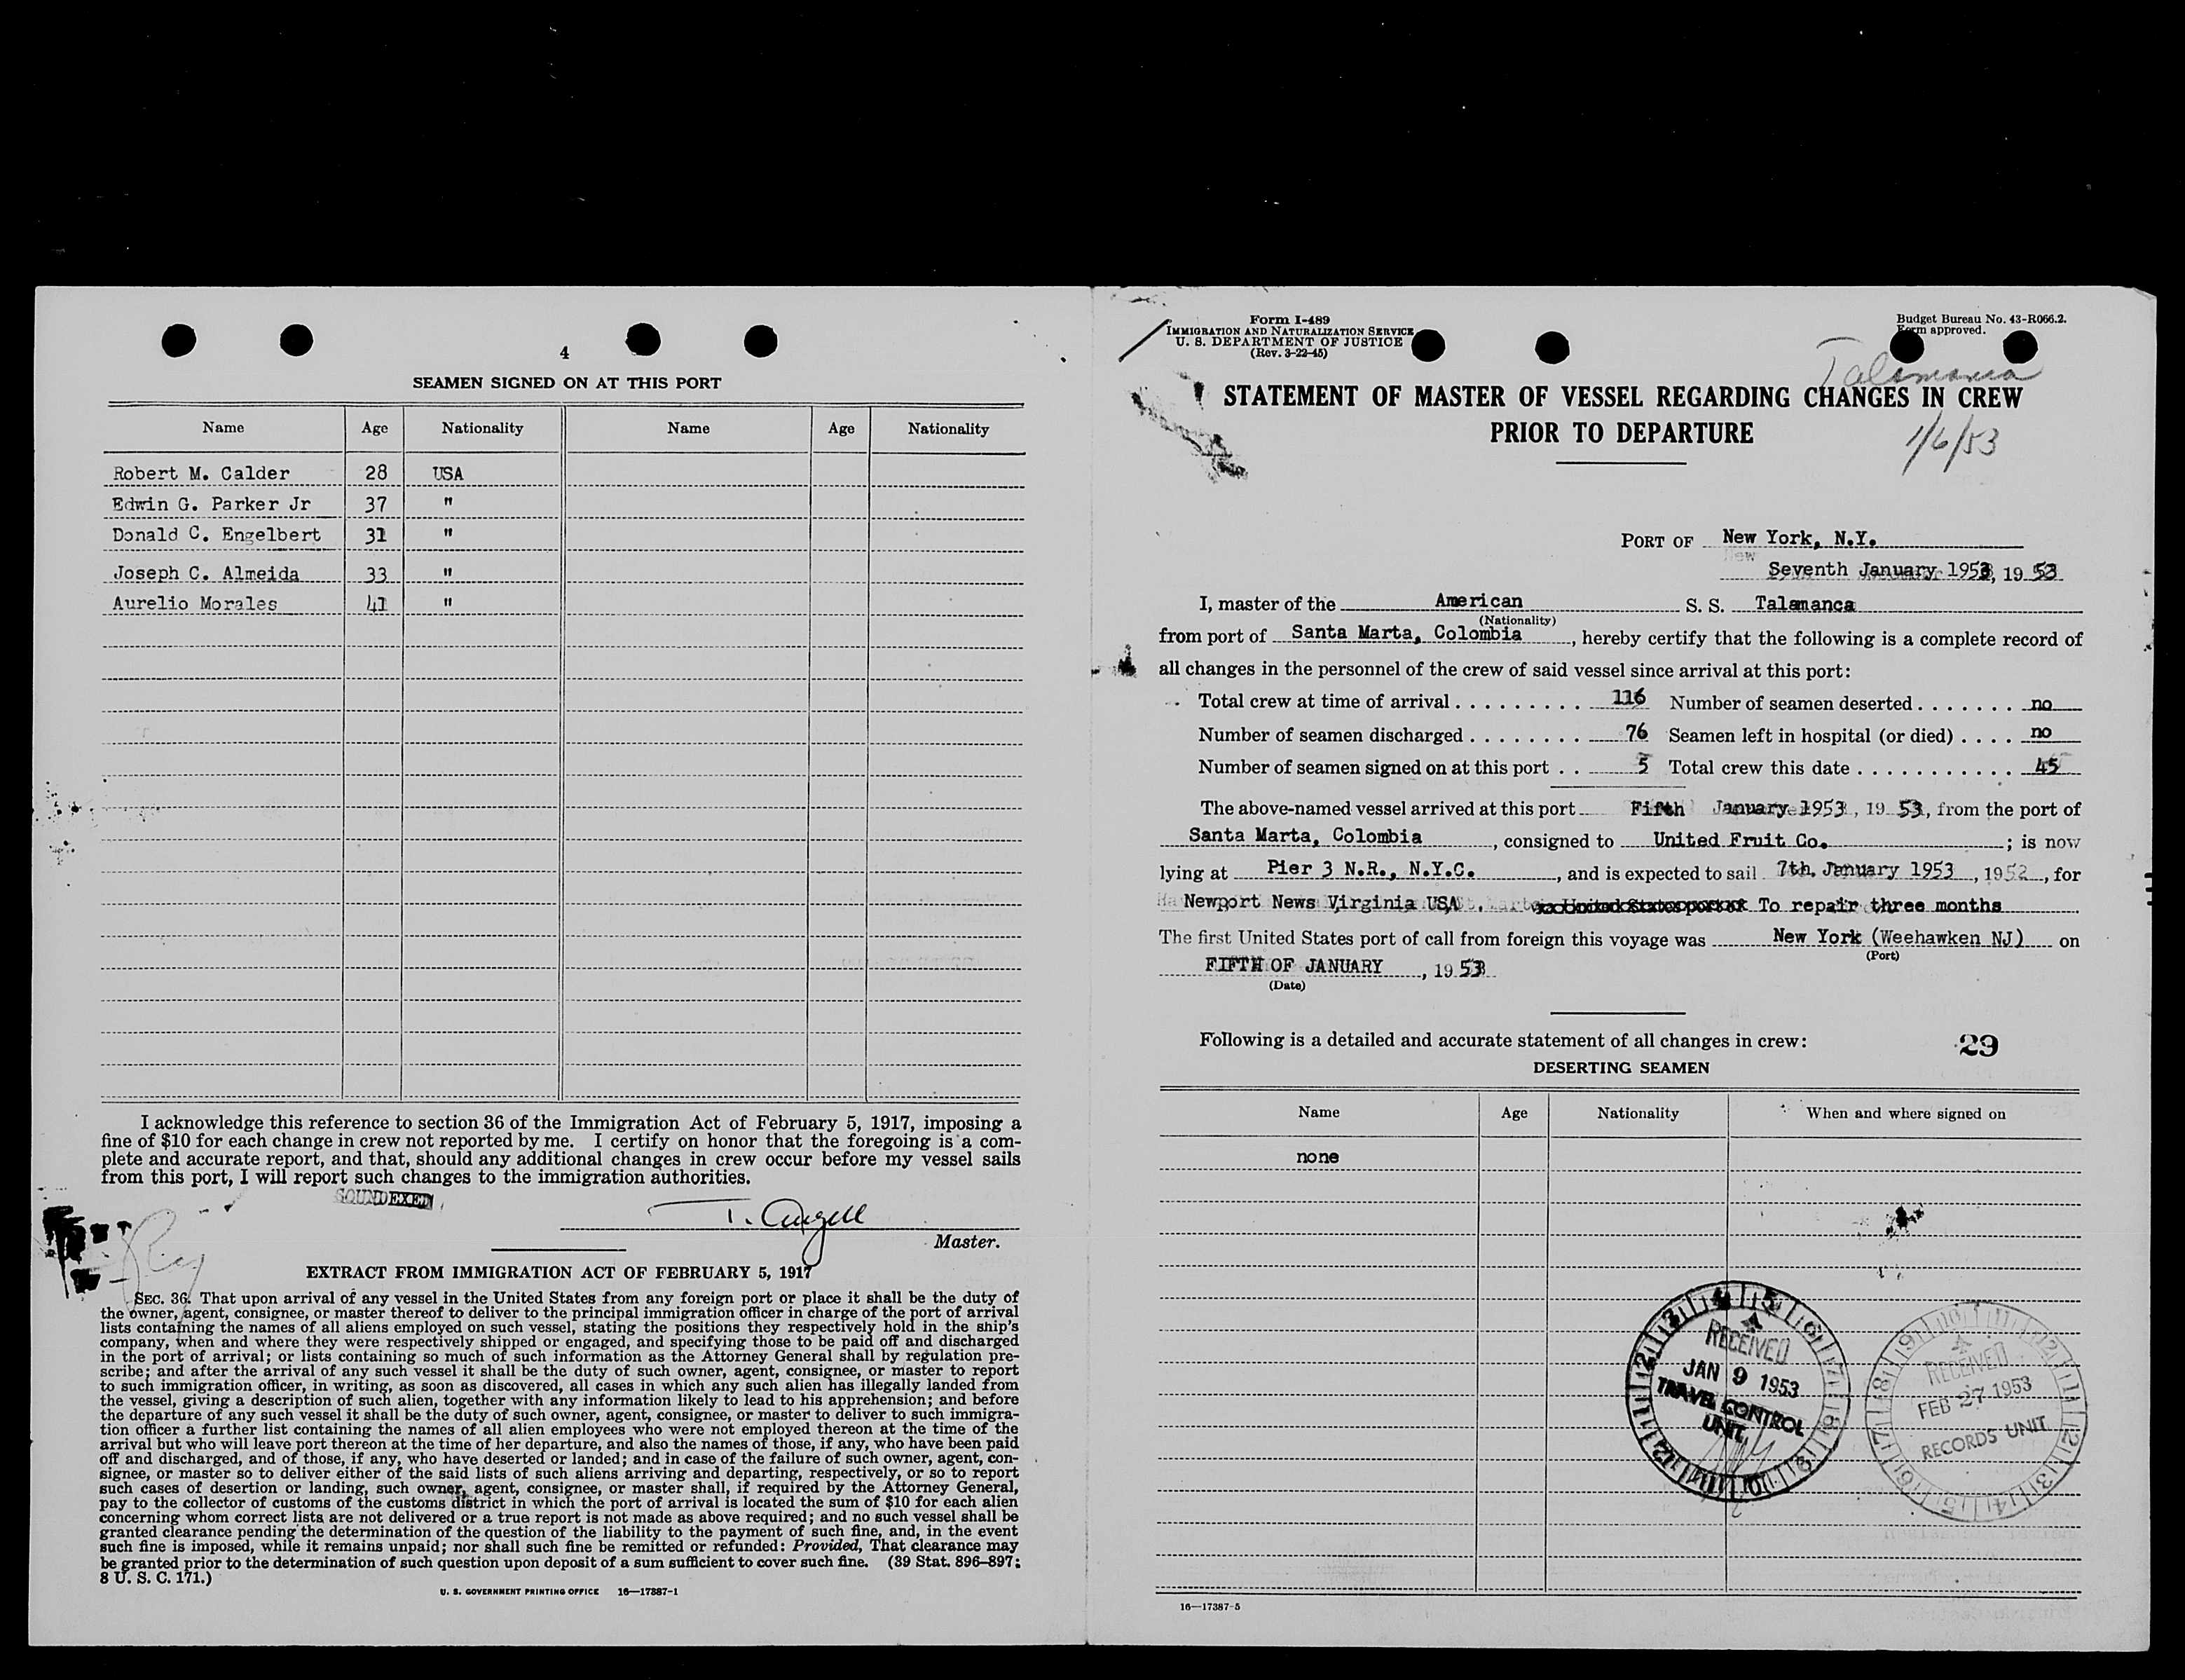 4
SEAMEN SIGNED ON AT THIS PORT
Name Age Nationality Name Age Nationality
Robert M. Calder 28 USA
Edwin G. Parker Jr 37 "
Donald C. Engelbert 31 "
Joseph C. Almeida 33 "
Aurelio Morales 41 "
I acknowledge this reference to section 36 of the Immigration Act of February 5, 1917, imposing a
fine of $10 for each change in crew not reported by me. I certify on honor that the foregoing is a com-
plete and accurate report, and that, should any additional changes in crew occur before my vessel sails
from this port, I will report such changes to the immigration authorities.
SOUNDEXED
T. Angell
Master.
EXTRACT FROM IMMIGRATION ACT OF FEBRUARY 5, 1917
SEC. 36. That upon arrival of any vessel in the United States from any foreign port or place it shall be the duty of
the owner, agent, consignee, or master thereof to deliver to the principal immigration officer in charge of the port of arrival
lists containing the names of all aliens employed on such vessel, stating the positions they respectively hold in the ship's
company, when and where they were respectively shipped or engaged, and specifying those to be paid off and discharged
in the port of arrival; or lists containing so much of such information as the Attorney General shall by regulation pre-
scribe; and after the arrival of any such vessel it shall be the duty of such owner, agent, consignee, or master to report
to such immigration officer, in writing, as soon as discovered, all cases in which any such alien has illegally landed from
the vessel, giving a description of such alien, together with any information likely to lead to his apprehension; and before
the departure of any such vessel it shall be the duty of such owner, agent, consignee, or master to deliver to such immigra-
tion officer a further list containing the names of all alien employees who were not employed thereon at the time of the
arrival but who will leave port thereon at the time of her departure, and also the names of those, if any, who have been paid
off and discharged, and of those, if any, who have deserted or landed; and in case of the failure of such owner, agent, con-
signee, or master so to deliver either of the said lists of such aliens arriving and departing, respectively, or so to report
such cases of desertion or landing, such owner, agent, consignee, or master shall, if required by the Attorney General,
pay to the collector of customs of the customs district in which the port of arrival is located the sum of $10 for each alien
concerning whom correct lists are not delivered or a true report is not made as above required; and no such vessel shall be
granted clearance pending the determination of the question of the liability to the payment of such fine, and, in the event
such fine is imposed, while it remains unpaid; nor shall such fine be remitted or refunded: Provided, That clearance may
be granted prior to the determination of such question upon deposit of a sum sufficient to cover such fine. (39 Stat. 896–897;
8 U. S. C. 171.)
U. S. GOVERNMENT PRINTING OFFICE 16—17387-1
Form I-489
IMMIGRATION AND NATURALIZATION SERVICE
U. S. DEPARTMENT OF JUSTICE
(Rev. 3-22-45)
Budget Bureau No. 43-R066.2.
Form approved.
Talamanca
STATEMENT OF MASTER OF VESSEL REGARDING CHANGES IN CREW
PRIOR TO DEPARTURE
1/6/53
PORT OF New York, N.Y.
Seventh January 1953, 19 53
I, master of the American S. S. Talamanca
(Nationality)
from port of Santa Marta, Colombia, hereby certify that the following is a complete record of
all changes in the personnel of the crew of said vessel since arrival at this port:
Total crew at time of arrival 116 Number of seamen deserted no
Number of seamen discharged 76 Seamen left in hospital (or died) no
Number of seamen signed on at this port 5 Total crew this date 45
The above-named vessel arrived at this port Fifth January 1953, 19 53, from the port of
Santa Marta, Colombia, consigned to United Fruit Co.; is now
lying at Pier 3 N.R., N.Y.C., and is expected to sail 7th. January 1953, 1952, for
Newport News Virginia USA. To repair three months
The first United States port of call from foreign this voyage was New York (Weehawken NJ) on
(Port)
FIFTH OF JANUARY, 19 53
(Date)
Following is a detailed and accurate statement of all changes in crew:
29
DESERTING SEAMEN
Name Age Nationality When and where signed on
none
RECEIVED
JAN 9 1953
TRAVEL CONTROL
UNIT
RECEIVED
FEB 27 1953
RECORDS UNIT
16—17387-5